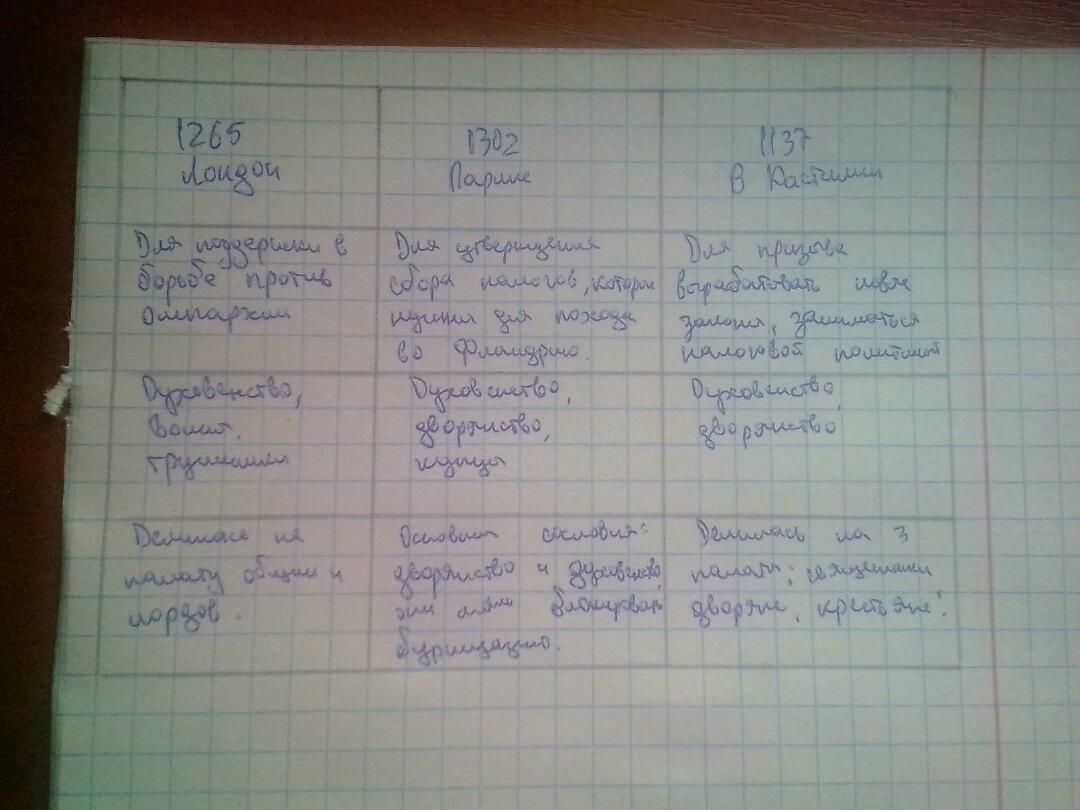 1265
Лондон
1302
Париж
1137
В Кастилии
Для поддержки в
борьбе против
олигархии
Для утверждения
сбора налогов, которые
нужны для похода
во Фландрию.
Для призыва
вырабатовать новые
законы, заниматься
налоговой политикой
Духовенство,
Духовенство,
дворянство,
купцы
Духовенство,
дворянство
Делилась на
палату общин и
лордов.
Основных сословия:
дворянство и духовенство
они могли блокировать
буржуазию.
Делилась на 3
палаты; священники
дворяне, крестьяне.